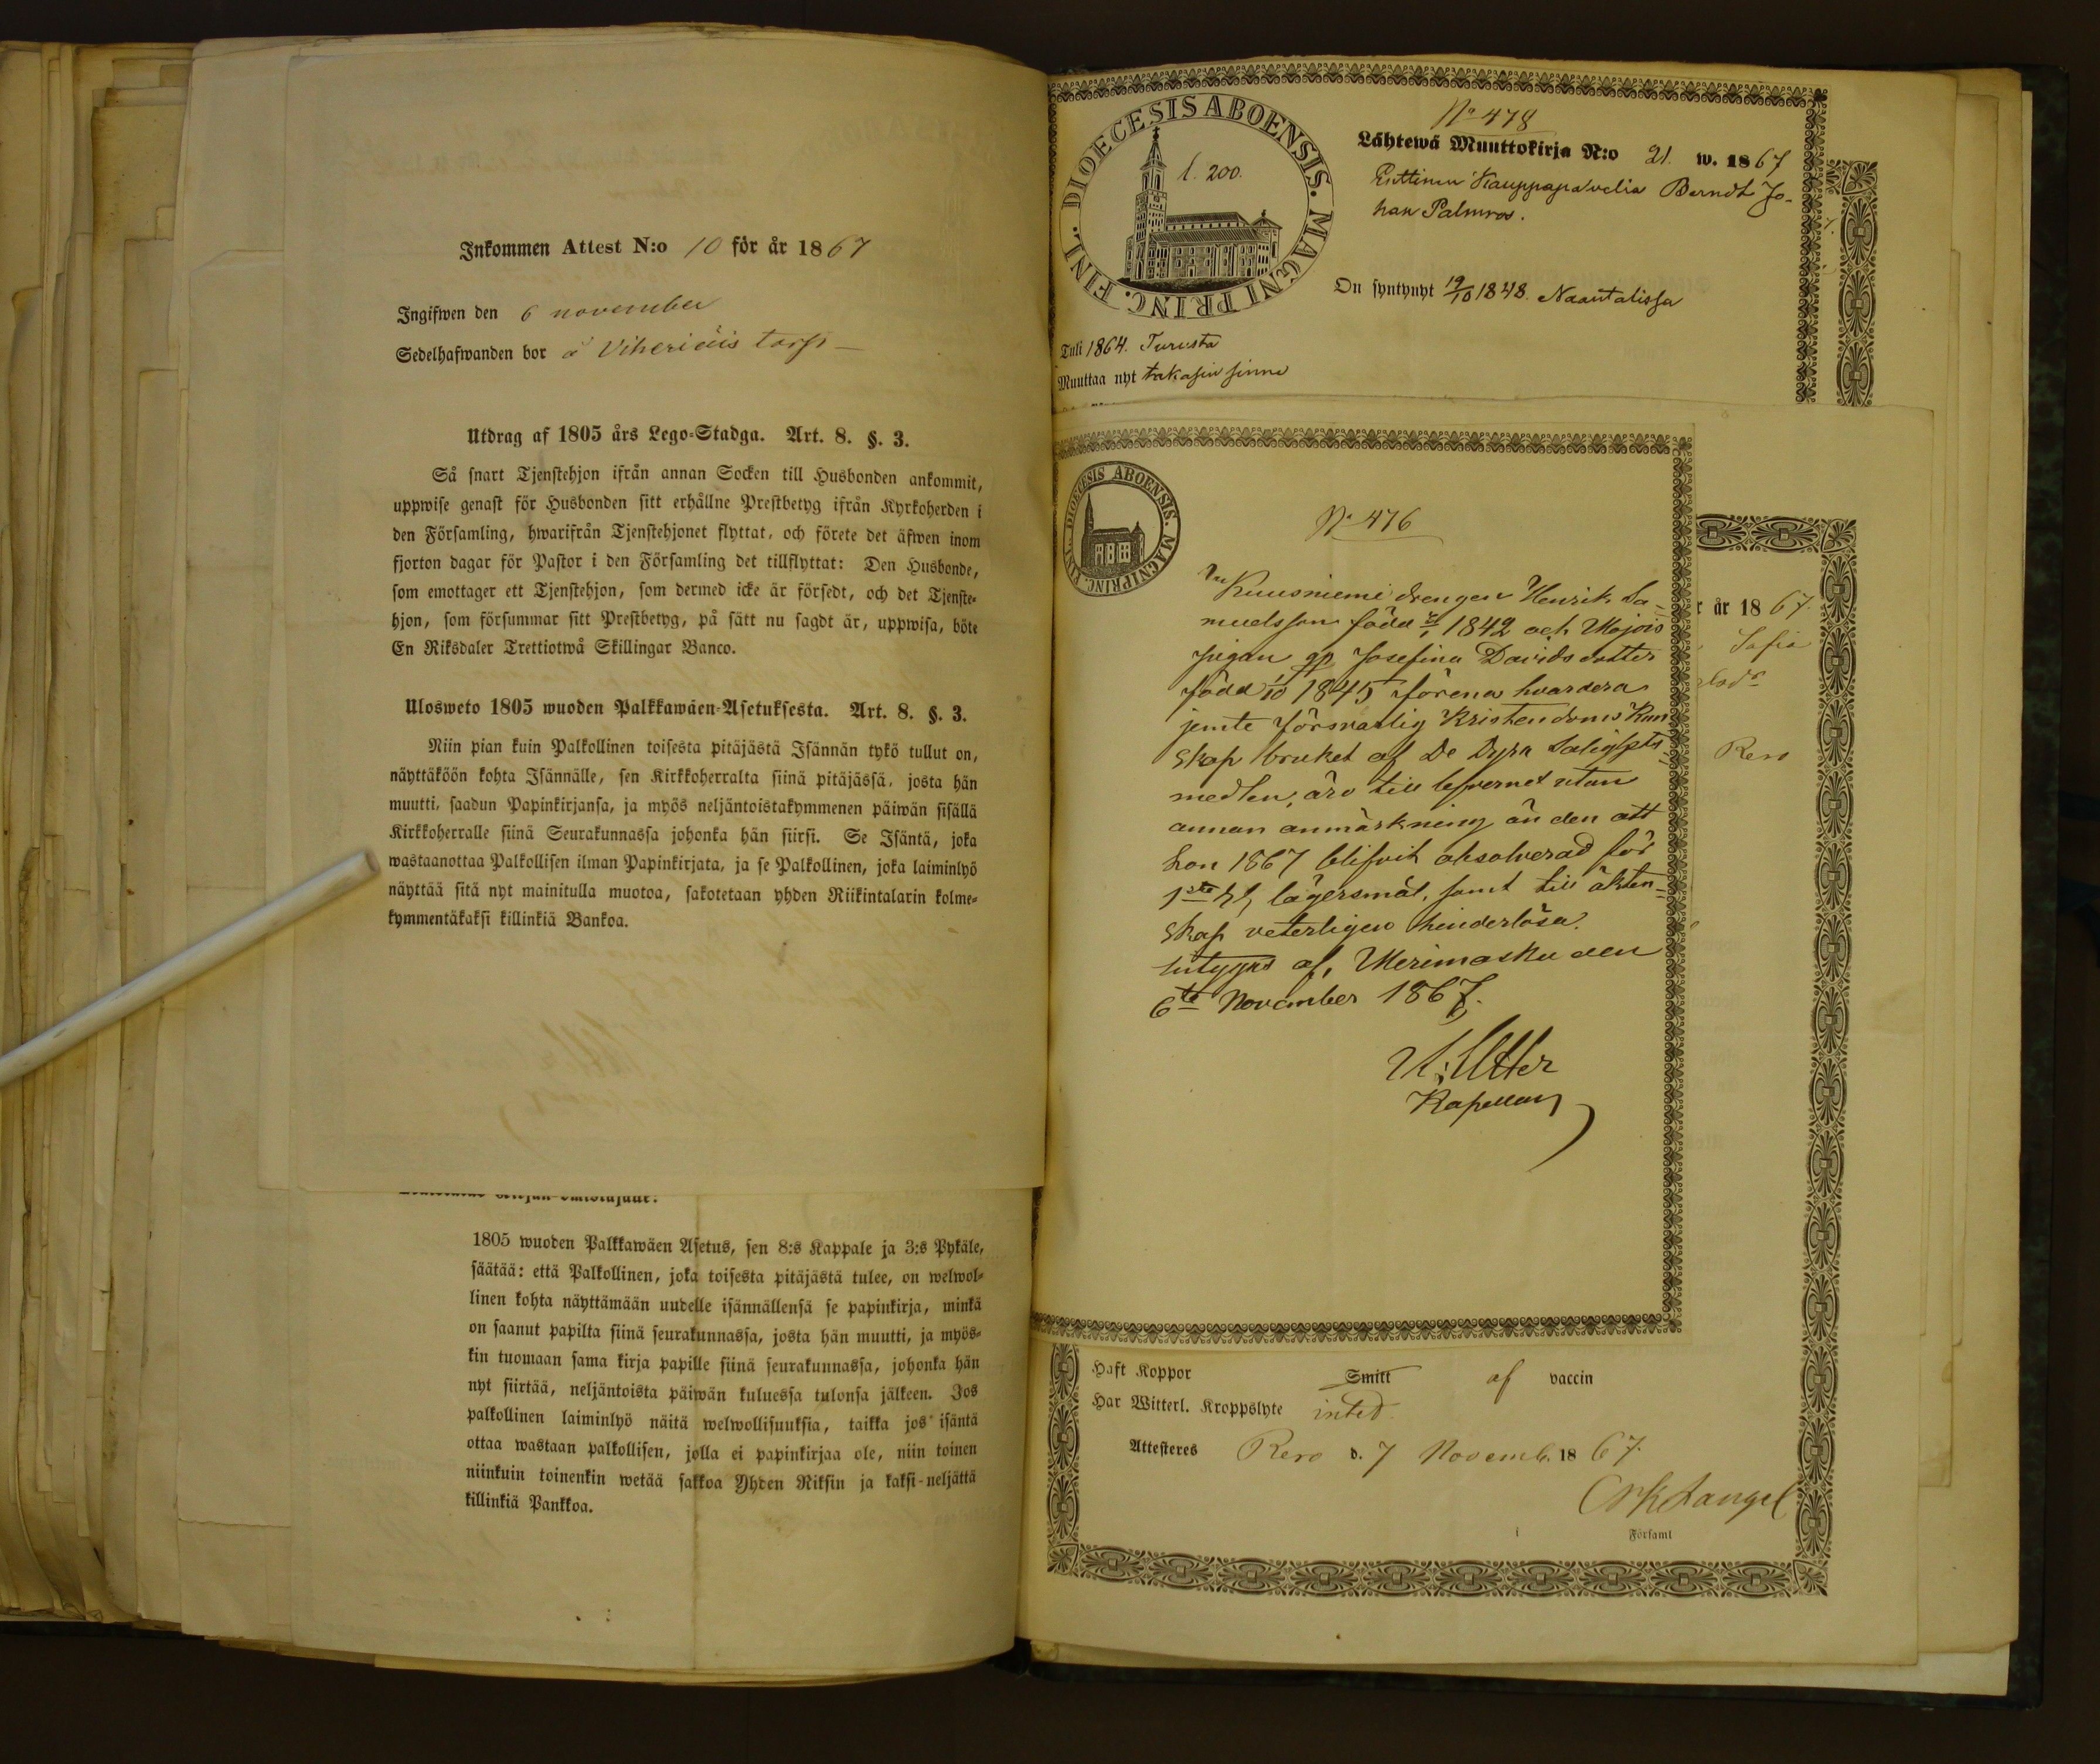 Inkommen Attest N:o 10 för år 1867
Ingifwen den 6 november
Sedelhafwanden bor å Viheriäis torp
Utdrag af 1805 års Lego-Stadga. Art. 8. §. 3.
Så snart Tjenstehjon ifrån annan Socken till Husbonden ankommit,
uppwise genast för Husbonden sitt erhållne Prestbetyg ifrån Kyrkoherden i
den Församling, hwarifrån Tjenstehjonet flyttat, och förete det äfwen inom
fjorton dagar för Pastor i den Församling det tillflyttat: Den Husbonde,
som emottager ett Tjenstehjon, som dermed icke är försedt, och det Tjenste-
hjon, som försummar sitt Prestbetyg, på sätt nu sagdt är, uppwisa, böte
En Riksdaler Trettiotwå Skillingar Banco.
Ulosweto 1805 wuoden Palkkawäen-Asetuksesta. Art. 8. §. 3.
Niin pian kuin Palkollinen toisesta pitäjästä Isännän tykö tullut on,
näyttäköön kohta Isännälle, sen Kirkkoherralta siinä pitäjässä, josta hän
muutti, saadun Papinkirjansa, ja myös neljäntoistakymmenen päiwän sisällä
Kirkkoherralle siinä Seurakunnassa johonka hän siirsi. Se Isäntä, joka
wastaanottaa Palkollisen ilman Papinkirjata, ja se Palkollinen, joka laiminlyö
näyttää sitä nyt mainitulla muotoa, sakotetaan yhden Riikintalarin kolme-
kymmentäkaksi killinkiä Bankoa.
1805 wuoden Palkkawäen Asetus, sen 8:s Kappale ja 3:s Pykäle,
säätää: että Palkollinen, joka toisesta pitäjästä tulee, on welwol-
linen kohta näyttämään uudelle isännällensä se papinkirja, minkä
on saanut papilta siinä seurakunnassa, josta hän muutti, ja myös-
kin tuomaan sama kirja papille siinä seurakunnassa, johonka hän
nyt siirtää, neljäntoista päiwän kuluessa tulonsa jälkeen. Jos
palkollinen laiminlyö näitä welwollisuuksia, taikka jos isäntä
ottaa wastaan palkollisen, jolla ei papinkirjaa ole, niin toinen
niinkuin toinenkin wetää sakkoa Yhden Riksin ja kaksi-neljättä
killinkiä Pankkoa.
DIOECESIS ABOENSIS. MAGNI PRINC. FINL.
l. 200.
No 478
Lähtewä Muuttokirja N:o 21. w. 1867
Kauppapalvelia Berndt Jo-
han Palmros.
On syntynyt 19/10 1848. Naantalissa
Tuli 1864. Turusta
Muuttaa nyt takasin sinne
DIOECESIS ABOENSIS. MAGNI PRINC. FINL.
No 476
Kuusniemi drengen Henrik Sa-
muelsson född 1842 och Mojois
pigan Josefina Davidsdotter
född 1845 förena hvardera
jemte försvarlig Kristendoms kun
skap bruket af De Dyra Salighets
medlen, äro till lefvernet utan
annan anmärkning än den att
hon 1867 blifvit absolverad för
1sta lägersmål, samt till äkten-
skap veterligen hinderlösa.
intygas af, Merimasku den
6te November 1867.
Kapellan
r år 1867.
Sofia
Reso
Haft Koppor Smitt af vaccin
Har Witterl. Kroppslyte intet
Attesteres Reso d. 7 Novemb. 1867.
Langel
i Församl